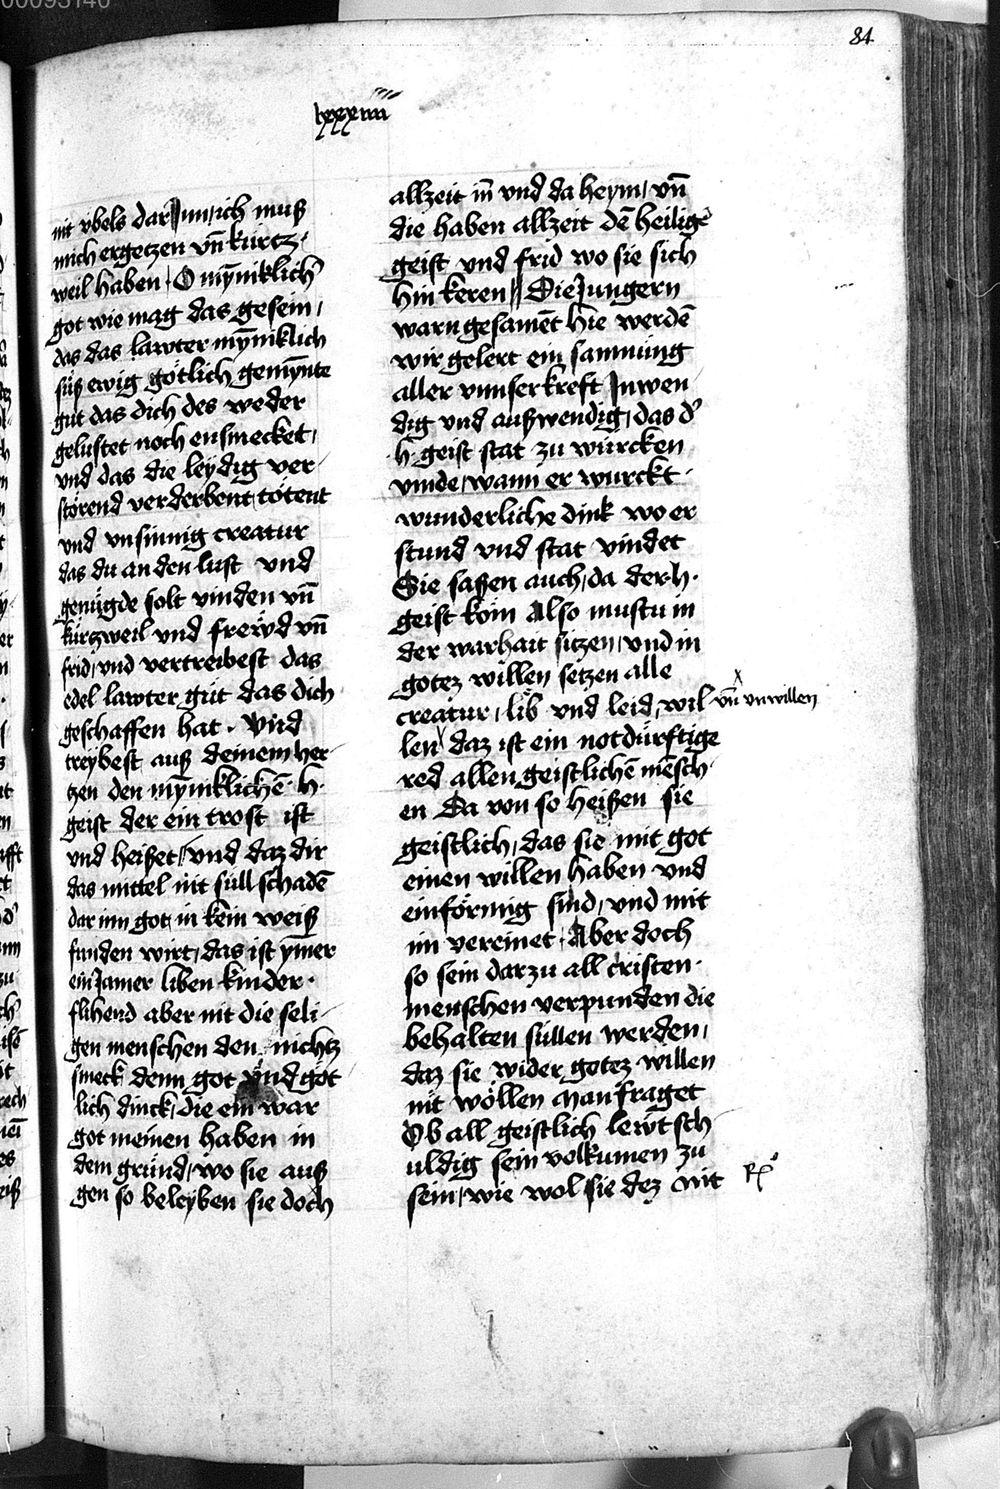 84
lxxxiiii
nit vbels dar jnn, ich muß
mich ergetzen vn̄ kurtz-
weil haben. O mȳniklich
got wie mag das gesein,
das das lawter mȳniklich
süß ewig götlich gemȳnte
gut das dich des weder
gelustet noch ensmecket,
vnd das die leÿdig ver-
störend verderbent tötent
vnd vnsinnig creatur
das du an den lust vnd
genügde solt vinden vn̄
kurtzweil vnd frewd vn̄
frid, vnd vertreibest das
edel lawter gut das dich
geschaffen hat. Vnd
treÿbest auß deinem her-
tzen den mȳniklichē .h.
geist der ein trost ist
vnd heißet, vnd daz dir
das mittel nit süll schadē
dar inn got in kein weiß
funden wirt, das ist ymer
ein Jamer liben kinder.
flihend aber nit die seli-
gen menschen den nichtz
smeck denn got vnd göt-
lich dinck, die ein war
got meinen haben in
dem grund, wo sie auß
gen so beleÿben sie doch
allzeit in̄ vnd da heym, vn̄
die haben allzeit dē heiligē
geist vnd frid wo sie sich
hin keren, Die Jungern
warn gesamēt hie werdē
wir gelert ein samnung
aller vnnser kreft Jnwen-
dig vnd außwendig, das d'
.h. geist stat zu würcken
vinde, wann er wurckt
wunderliche dink wo er
stund vnd stat vindet
Sie saßen auch, da der .h.
geist kom Also mustu in
der warhait sitzen, vnd in
gotez willen setzen alle
creatur, lib vnd leid, wil
vn̄ vnwillen
len daz ist ein notdürftige
red allen geistlichē mēsch-
en Da von so heißen sie
geistlich, das sie mit got
einen willen haben vnd
einförmig sind, vnd mit
im vereinet. Aber doch
so sein darzu all cristen-
menschen verpunden die
behalten süllen werden,
daz sie wider gotez willen
nit wöllen Man fraget
Ob all geistlich lewt sch-
uldig sein volkumen zu
sein, wie wol sie dez nit